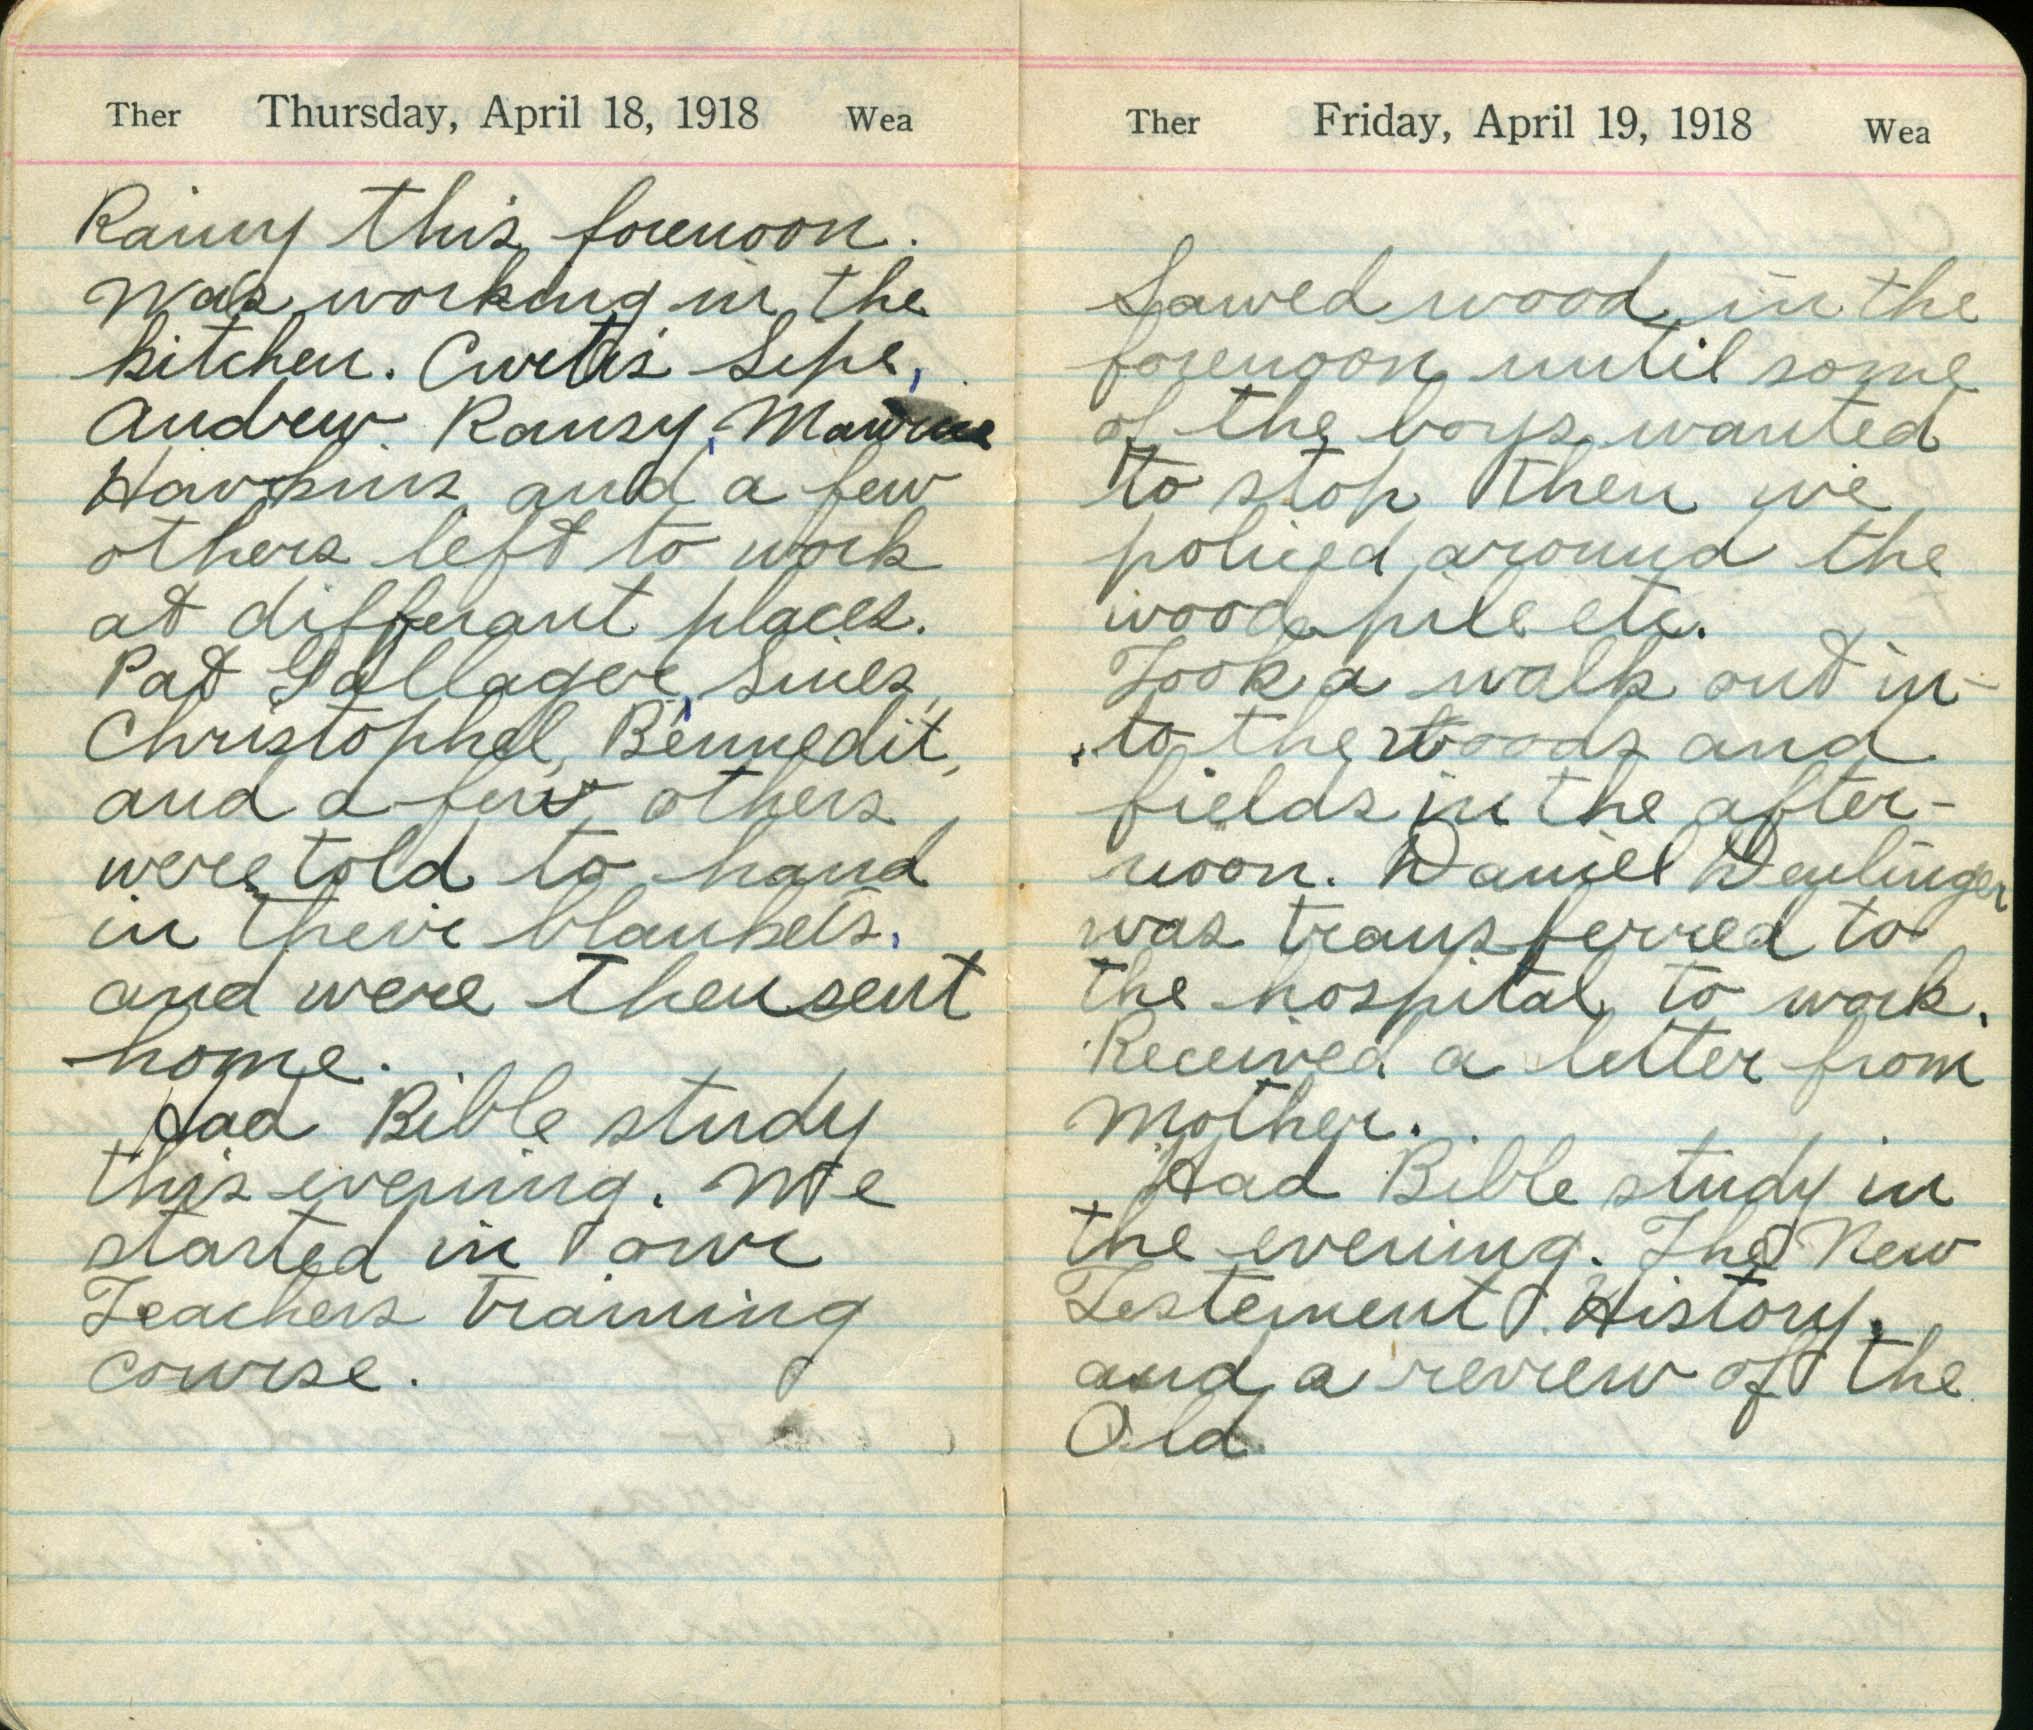 Ther Thursday, April 18, 1918 Wea
Rainy this forenoon.
Was working in the
kitchen. Curtis Sipe,
Andrew Ramsy,
Hawkins and a few
others left to work
at differant places.
Pat Gallager, Sines,
Christophel, Bennedit,
and a few others
were told to hand
in their blankets.
and were then sent
home.
Had Bible study
this evening. We
started in our
Teachers Training
course.
Ther Friday, April 19, 1918 Wea
Sawed wood in the
forenoon until some
of the boys wanted
to stop then we
policed around the
wood pile etc.
Took a walk out in-
to the woods and
fields in the after-
noon. Daniel Deplinger
was transferred to
the hospital to work.
Received a letter from
Mother.
Had Bible study in
the evening. The New
Testement History.
and a review of the
Old